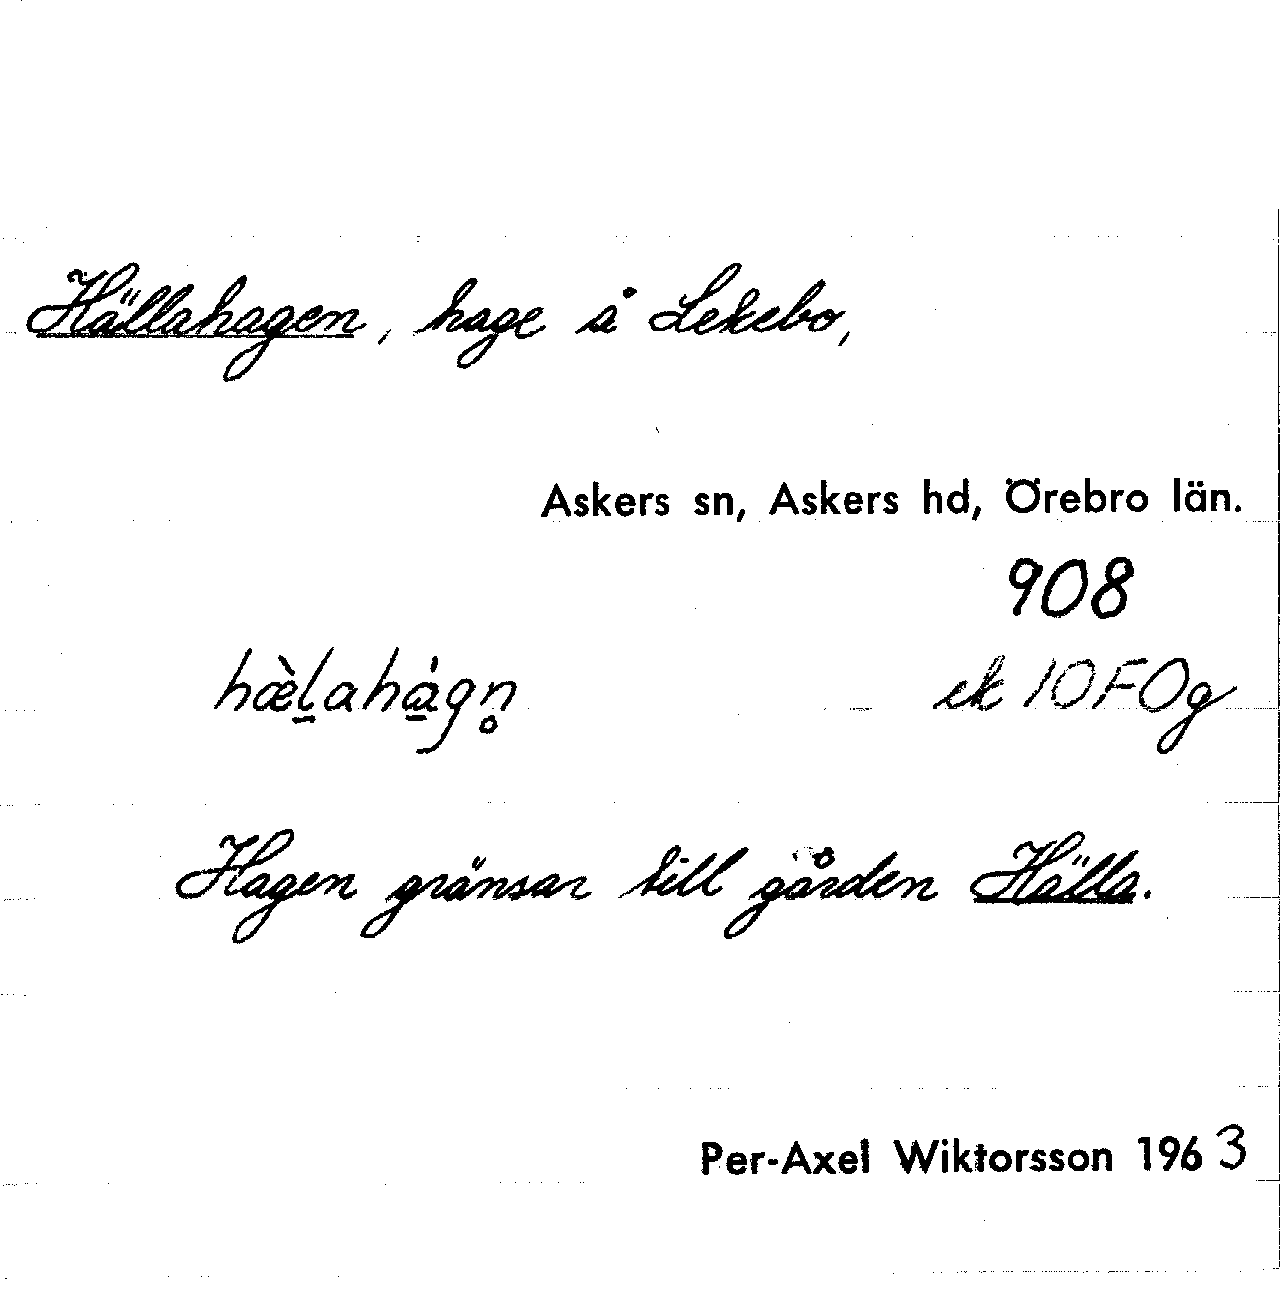 Hällahagen, hage å Lekebo,
Askers sn, Askers hd, Örebro län.
908
hæ̀l̠ahá̠gn̥
ek 10FOg
Hagen gränsar till gården Hälla.
Per-Axel Wiktorsson 1963